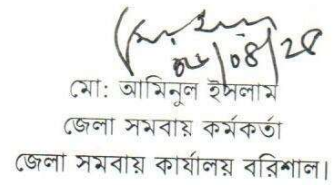 মো: আমিনুল ইসলাম
জেলা সমবায় কর্মকর্তা
জেলা সমবায় কার্যালয় বরিশাল।